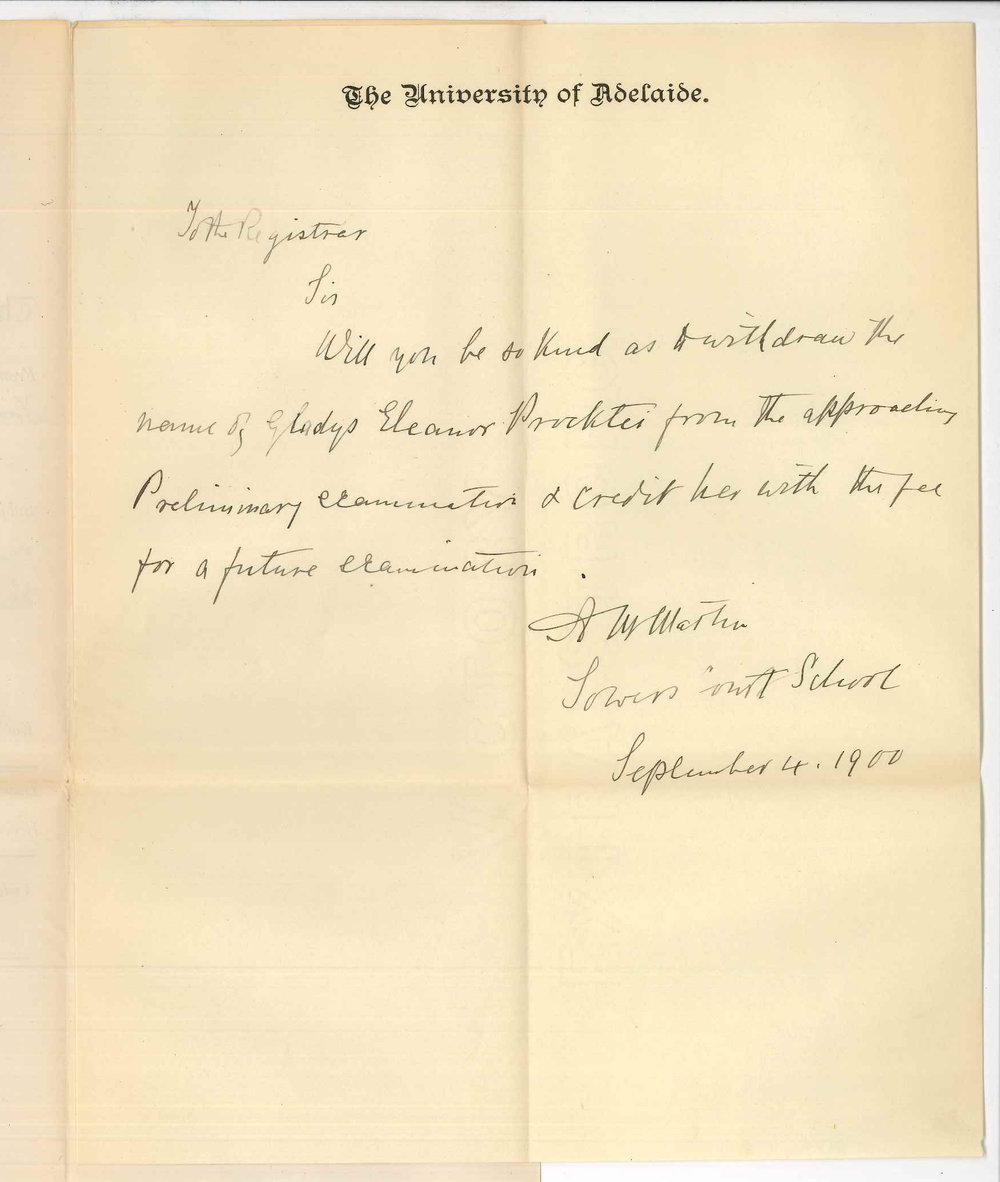 The University of Adelaide.
To the Registrar
Sir
Will you be so kind as to withdraw the
name of Gladys Eleanor Prockter from the approaching
Preliminary examination & credit her with the fee
for a future examination.
A M Martin
School
September 4. 1900